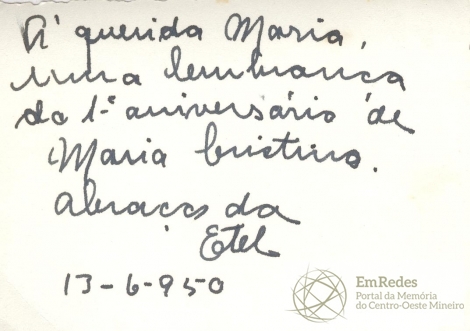 À querida Maria,
uma lembrança
do 1º aniversário de
Maria Cristina.
Abraços da
Etel
13-6-950
EmRedes
Portal da Memória
do Centro-Oeste Mineiro